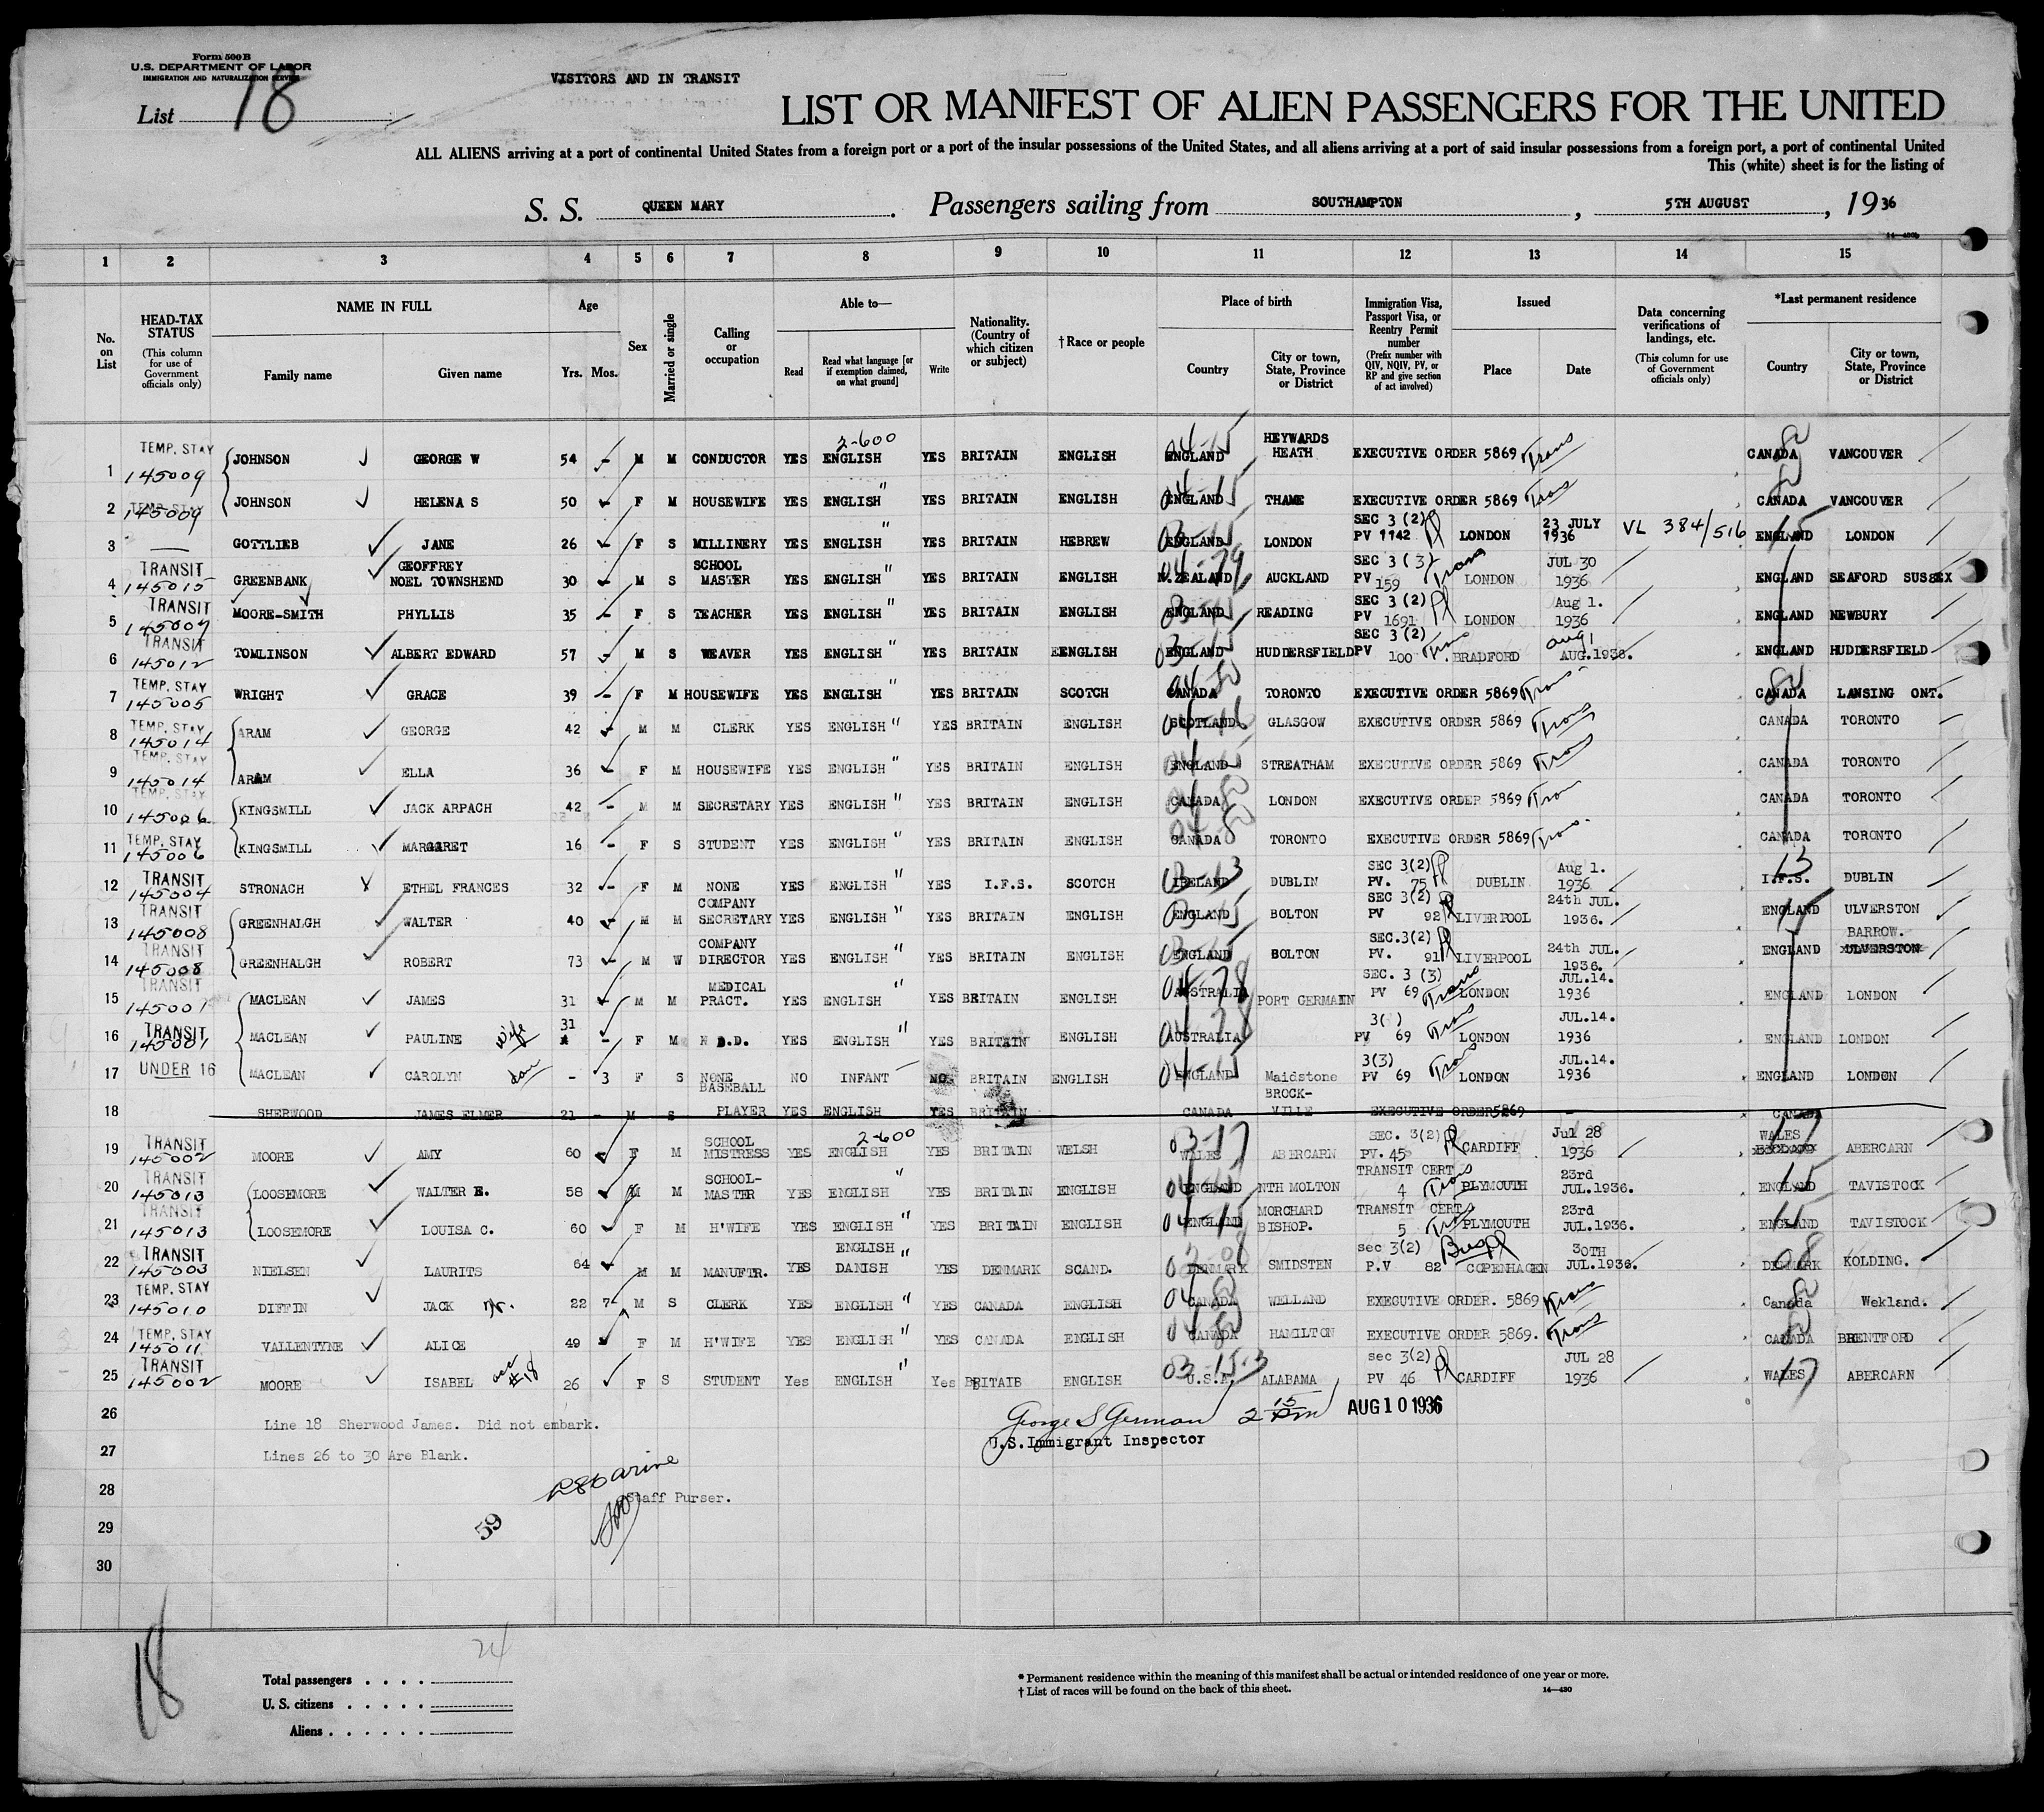 Form 500 B
U.S. DEPARTMENT OF LABOR
IMMIGRATION AND NATURALIZATION SERVICE
List 18
VISITORS AND IN TRANSIT
LIST OR MANIFEST OF ALIEN PASSENGERS FOR THE UNITED
ALL ALIENS arriving at a port of continental United States from a foreign port or a port of the insular possessions of the United States, and all aliens arriving at a port of said insular possessions from a foreign port, a port of continental United
This (white) sheet is for the listing of
S. S. QUEEN MARY. Passengers sailing from SOUTHAMPTON, 5TH AUGUST, 1936
1 2 3 4 5 6 7 8 9 10 11 12 13 14 15
No. on List
HEAD-TAX STATUS (This column for use of Government officials only)
NAME IN FULL Family name Given name
Age Yrs. Mos.
Sex
Married or single
Calling or occupation
Able to— Read Read what language [or if exemption claimed, on what ground] Write
Nationality. (Country of which citizen or subject)
†Race or people
Place of birth Country City or town, State, Province or District
Immigration Visa, Passport Visa, or Reentry Permit number (Prefix number with QIV, NQIV, PV, or RP and give section of act involved)
Issued Place Date
Data concerning verifications of landings, etc. (This column for use of Government officials only)
*Last permanent residence Country City or town, State, Province or District
1 TEMP. STAY 145009 JOHNSON GEORGE W 54 - M M CONDUCTOR YES 2-600 ENGLISH YES BRITAIN ENGLISH 04-15 ENGLAND HEYWARDS HEATH EXECUTIVE ORDER 5869 Trans CANADA VANCOUVER
2 TEMP. STAY 145009 JOHNSON HELENA S 50 - F M HOUSEWIFE YES ENGLISH " YES BRITAIN ENGLISH 04-15 ENGLAND THAME EXECUTIVE ORDER 5869 Trans CANADA VANCOUVER
3 — GOTTLIEB JANE 26 - F S MILLINERY YES ENGLISH " YES BRITAIN HEBREW 03-15 ENGLAND LONDON SEC 3 (2) PV 1142 Pl LONDON 23 JULY 1936 VL 384/516 ENGLAND 15 LONDON
4 TRANSIT 145015 GREENBANK GEOFFREY NOEL TOWNSHEND 30 - M S SCHOOL MASTER YES ENGLISH " YES BRITAIN ENGLISH 04-79 N.ZEALAND AUCKLAND SEC 3 (3) PV 159 Trans LONDON JUL 30 1936 ENGLAND SEAFORD SUSSEX
5 TRANSIT 145007 MOORE-SMITH PHYLLIS 35 - F S TEACHER YES ENGLISH " YES BRITAIN ENGLISH 03-15 ENGLAND READING SEC 3 (2) PV 1691 Pl LONDON Aug 1. 1936 ENGLAND NEWBURY
6 TRANSIT 145012 TOMLINSON ALBERT EDWARD 57 - M S WEAVER YES ENGLISH " YES BRITAIN EENGLISH 03-15 ENGLAND HUDDERSFIELD SEC 3 (2) PV 100 Trans BRADFORD Aug 1 AUG.1936. ENGLAND HUDDERSFIELD
7 TEMP. STAY 145005 WRIGHT GRACE 39 - F M HOUSEWIFE YES ENGLISH " YES BRITAIN SCOTCH 04-80 CANADA TORONTO EXECUTIVE ORDER 5869 Trans CANADA 80 LANSING ONT.
8 TEMP. STAY 145014 ARAM GEORGE 42 M M CLERK YES ENGLISH " YES BRITAIN ENGLISH 04-16 SCOTLAND GLASGOW EXECUTIVE ORDER 5869 Trans CANADA TORONTO
9 TEMP. STAY 145014 ARAM ELLA 36 - F M HOUSEWIFE YES ENGLISH " YES BRITAIN ENGLISH 04-15 ENGLAND STREATHAM EXECUTIVE ORDER 5869 Trans CANADA TORONTO
10 TEMP. STAY 145006 KINGSMILL JACK ARPACH 42 - M M SECRETARY YES ENGLISH " YES BRITAIN ENGLISH 04-80 CANADA LONDON EXECUTIVE ORDER 5869 Trans CANADA TORONTO
11 TEMP. STAY 145006 KINGSMILL MARGARET 16 - F S STUDENT YES ENGLISH YES BRITAIN ENGLISH 04-80 CANADA TORONTO EXECUTIVE ORDER 5869 Trans. CANADA TORONTO
12 TRANSIT 145004 STRONACH ETHEL FRANCES 32 - F M NONE YES ENGLISH " YES I.F.S. SCOTCH 03-13 IRELAND DUBLIN SEC 3(2) PV. 75 Pl DUBLIN Aug 1. 1936 13 I.F.S. DUBLIN
13 TRANSIT 145008 GREENHALGH WALTER 40 - M M COMPANY SECRETARY YES ENGLISH " YES BRITAIN ENGLISH 03-15 ENGLAND BOLTON SEC 3(2) PV 92 Pl LIVERPOOL 24th JUL. 1936. ENGLAND 15 ULVERSTON
14 TRANSIT 145008 GREENHALGH ROBERT 73 - M W COMPANY DIRECTOR YES ENGLISH " YES BRITAIN ENGLISH 03-15 ENGLAND BOLTON SEC.3(2) PV. 91 Pl LIVERPOOL 24th JUL. 1936. ENGLAND BARROW. ULVERSTON
15 TRANSIT 145001 MACLEAN JAMES 31 - M M MEDICAL PRACT. YES ENGLISH " YES BRITAIN ENGLISH 04-78 AUSTRALIA PORT GERMAIN SEC. 3 (3) PV 69 Trans LONDON JUL.14. 1936 ENGLAND LONDON
16 TRANSIT 145001 MACLEAN PAULINE wife 31 - F M H.D.D. YES ENGLISH " YES BRITAIN ENGLISH 04-78 AUSTRALIA 3( ) PV 69 Trans LONDON JUL.14. 1936 ENGLAND LONDON
17 UNDER 16 MACLEAN CAROLYN dau - 3 F S NONE NO INFANT NO. BRITAIN ENGLISH 04-15 ENGLAND Maidstone 3(3) PV 69 Trans LONDON JUL.14. 1936 ENGLAND LONDON
18 SHERWOOD JAMES ELMER 21 - M S BASEBALL PLAYER YES ENGLISH YES BRITAIN CANADA BROCK-VILLE EXECUTIVE ORDER 5869 - CANADA
19 TRANSIT 145002 MOORE AMY 60 F M SCHOOL MISTRESS YES 2-600 ENGLISH YES BRITAIN WELSH 03-17 WALES ABERCARN SEC. 3(2) PV. 45 Pl CARDIFF Jul 28 1936 WALES 17 ABERCARN
20 TRANSIT 145013 LOOSEMORE WALTER E. 58 M M SCHOOL-MASTER YES ENGLISH " YES BRITAIN ENGLISH 04-15 ENGLAND NTH MOLTON TRANSIT CERT 4 Trans PLYMOUTH 23rd JUL.1936. ENGLAND 15 TAVISTOCK
21 TRANSIT 145013 LOOSEMORE LOUISA C. 60 F M H'WIFE YES ENGLISH " YES BRITAIN ENGLISH 04-15 ENGLAND MORCHARD BISHOP. TRANSIT CERT 5 Trans PLYMOUTH 23rd JUL.1936. ENGLAND 15 TAVISTOCK
22 TRANSIT 145003 NIELSEN LAURITS 64 M M MANUFTR. YES ENGLISH DANISH " YES DENMARK SCAND. 03-08 DENMARK SMIDSTEN sec 3(2) P.V 82 Pl COPENHAGEN 30TH JUL.1936. DENMARK 08 KOLDING.
23 TEMP. STAY 145010 DIFFIN JACK Jr. 22 7 M S CLERK YES ENGLISH " YES CANADA ENGLISH 04-80 CANADA WELLAND EXECUTIVE ORDER. 5869 Trans Canada 80 Wekland.
24 TEMP. STAY 145011 VALLENTYNE ALICE 49 F M H'WIFE YES ENGLISH " YES CANADA ENGLISH 04-80 CANADA HAMILTON EXECUTIVE ORDER 5869. Trans CANADA 80 BRENTFORD
25 TRANSIT 145002 MOORE ISABEL acc #18 26 F S STUDENT Yes ENGLISH " Yes BRITAIB ENGLISH 03-15-3 U.S.A. ALABAMA sec 3(2) PV 46 Pl CARDIFF JUL 28 1936 WALES 17 ABERCARN
26 Line 18 Sherwood James. Did not embark. George S German 2 15 Pm AUG 10 1936
U.S.Immigrant Inspector
27 Lines 26 to 30 Are Blank.
28 Staff Purser.
29 59
30
18
24
Total passengers
U. S. citizens
Aliens
* Permanent residence within the meaning of this manifest shall be actual or intended residence of one year or more.
† List of races will be found on the back of this sheet.
14—430